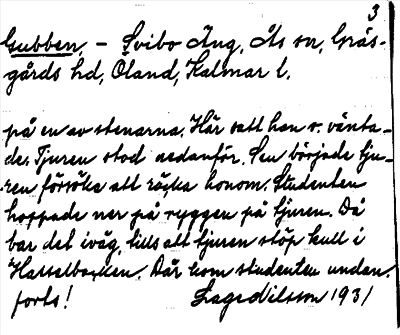 3
Gubben, – Svibo Äng, Ås sn, Gräs-
gårds hd, Öland, Kalmar l.
på en av stenarna. Här satt han o. vänta-
de. Tjuren stod nedanför. Sen började tju-
ren försöka att räcka honom. Studenten
hoppade ner på ryggen på tjuren. Då
bar det iväg, tills att tjuren stöp kull i
Hasselbacken. Där kom studenten undan.
forts! Lage Nilsson 1931